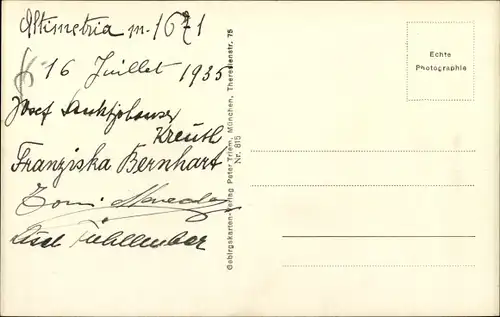 Altimetria m. 1671
16 Juillet 1935
Josef
Kreuth
Franziska Bernhart
Toni
Gebirgskarten-Verlag Peter Triem, München, Theresienstr. 75
Nr. 815
Echte
Photographie